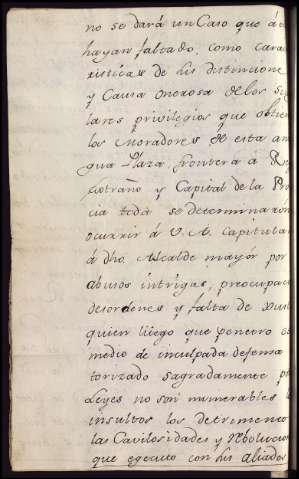 no se dará un Caso que á e
hayan faltado, como Cara
risticas de sus distincione
y Causa onerosa de los Si
lares privilegios que obtie
los Moradores de esta an
gua Plaza frontera á R
extraño y Capital de la Pro
cia toda se determinaron
ocurrir á V. A. Capitular
á dho. Alcalde mayor por
abusos intrigas, preocupac
desordenes y falta de
quien luego que penetro es
medio de inculpada defensa
torizado sagradamente p
Leyes no son numerables l
insultos los detrimento
las Cavilosidades y rebolucion
que egecuto con sus aliados